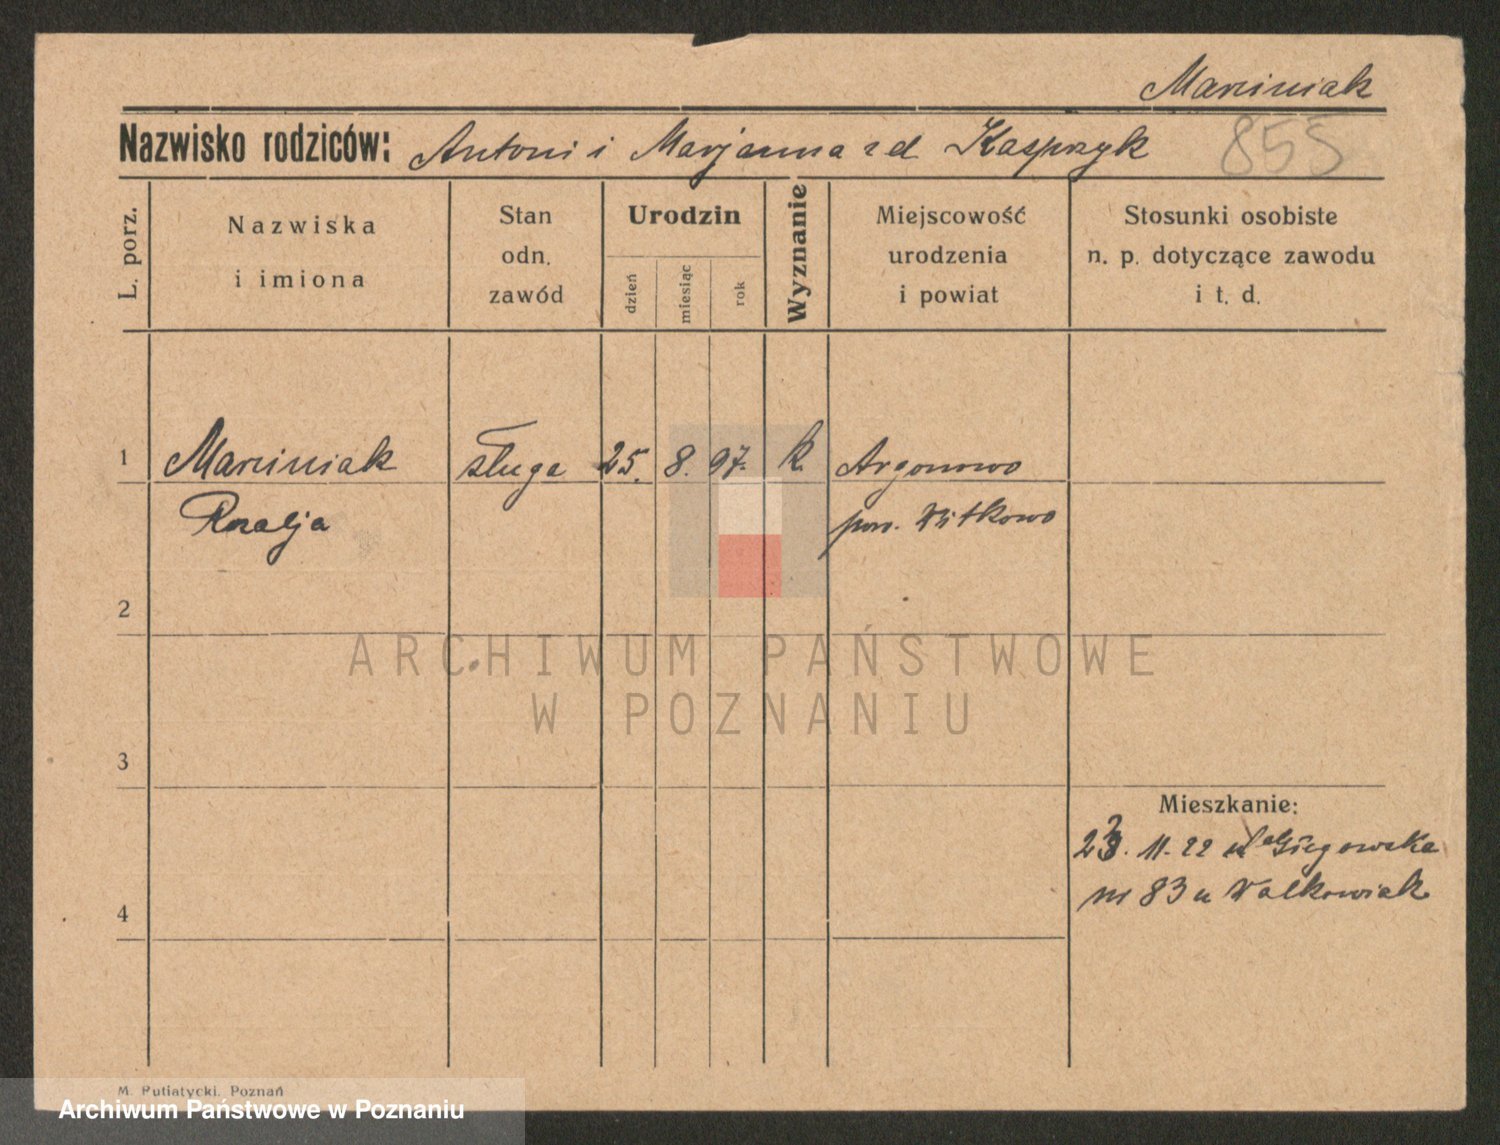 Marciniak
Nazwisko rodziców: Antoni i Marjanna zd Kasprzyk 855
L. porz.
Nazwiska
i imiona
Stan
odn.
zawód
Urodzin
dzień
miesiąc
rok
Wyznanie
Miejscowość
urodzenia
i powiat
Stosunki osobiste
n. p. dotyczące zawodu
i t. d.
1 Marciniak sługa 25. 8. 97. k. Argonowo
Rozalja pow. Witkowo
2
ARCHIWUM PAŃSTWOWE
W POZNANIU
3
Mieszkanie:
11. 22
4 nr 83 u Walkowiak
M. Putiatycki, Poznań
Archiwum Państwowe w Poznaniu